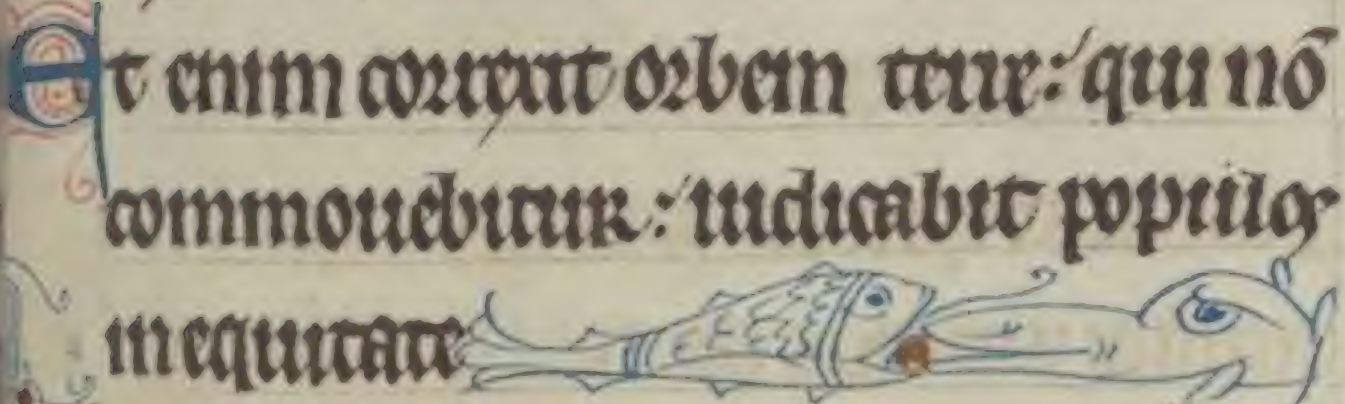 Et enim correxit orbem terre: qui nō
commouebitur: iudicabit populos
in equitate